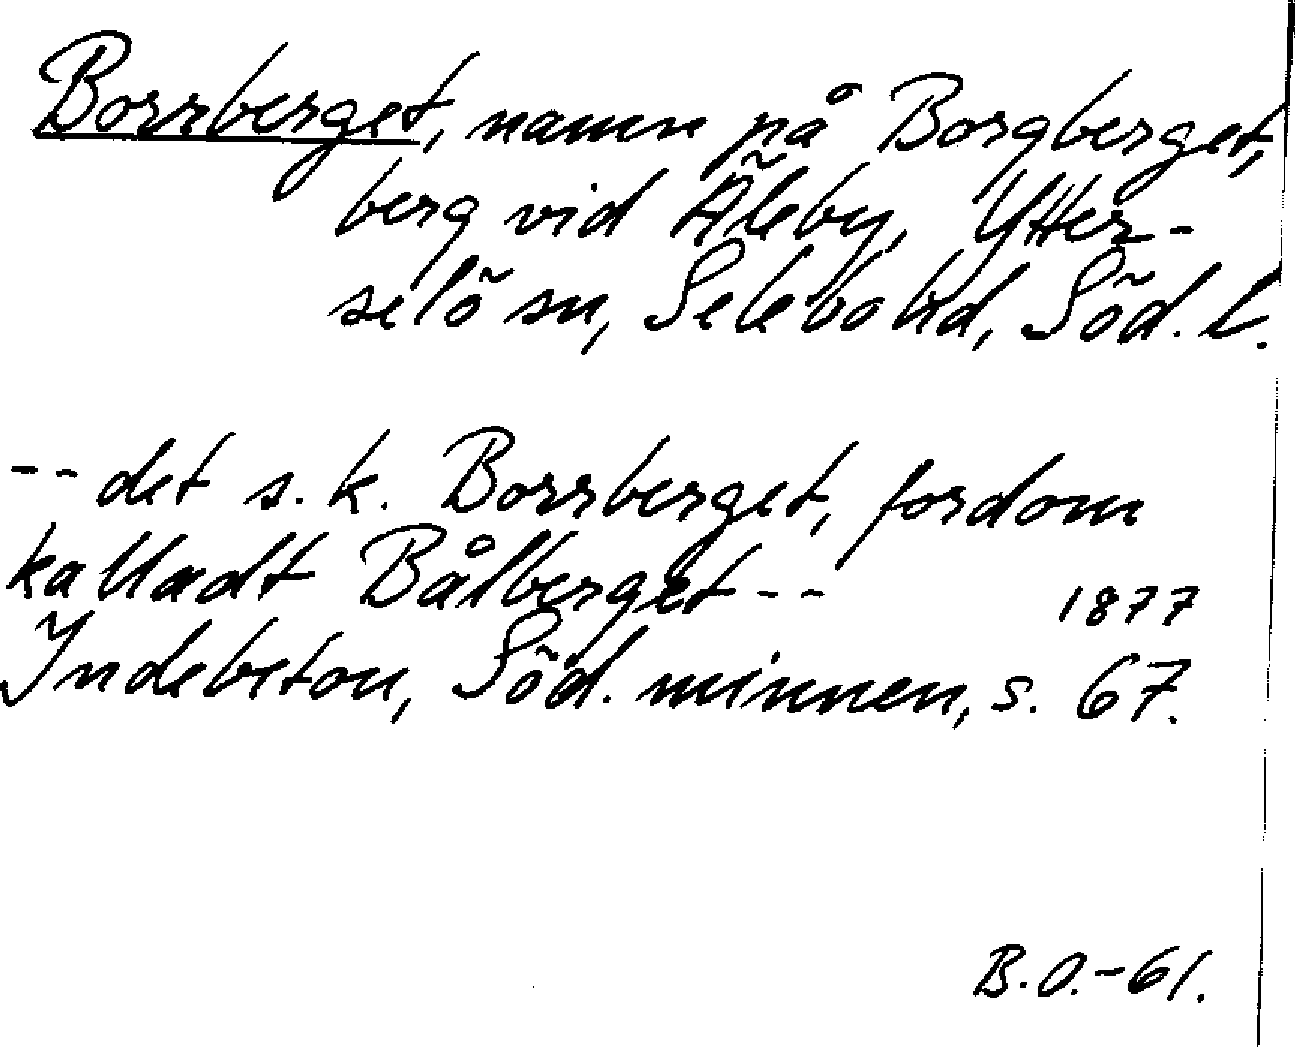 Borrberget, namn på Borgberget,
berg vid Äleby, Ytter-
selö sn, Selebo hd, Söd. l.
-- det s.k. Borrberget, fordom
kalladt Bålberget --
1877
Indebetou, Söd. minnen, s. 67.
B.O.-61.